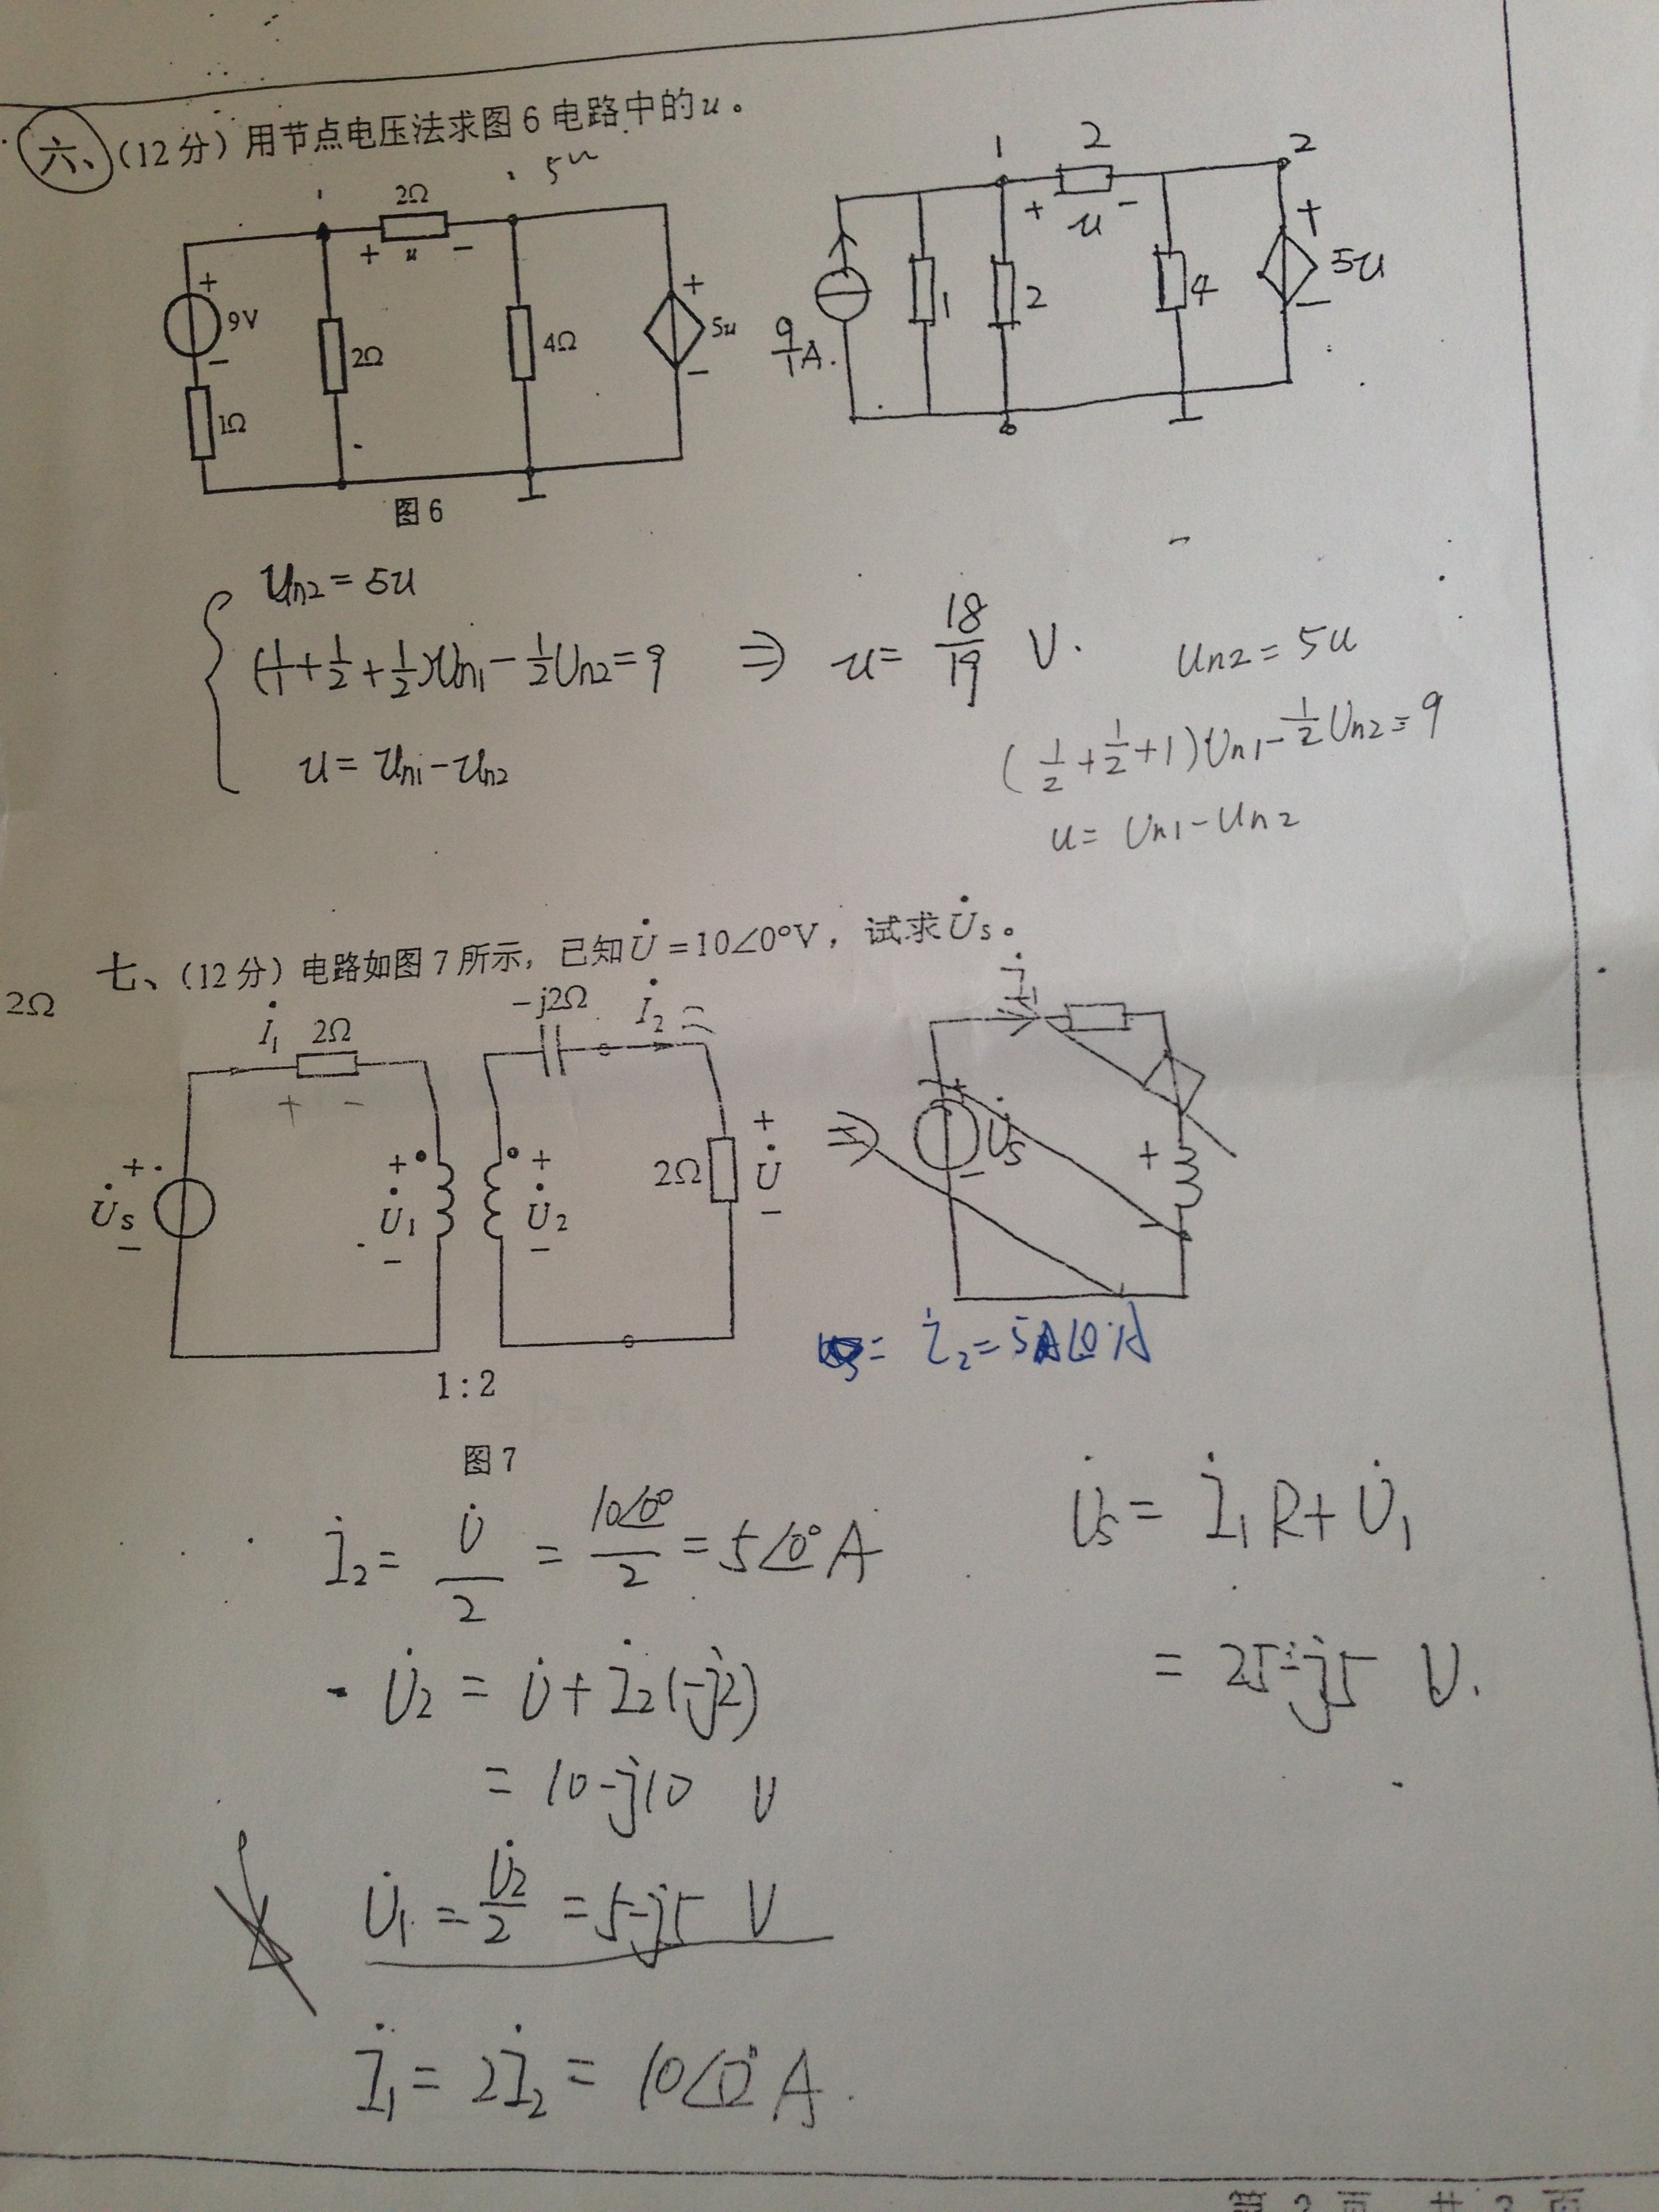 六、(12分)用节点电压法求图6电路中的u。
5u
2Ω
+ u −
+
9V
−
1Ω
2Ω
4Ω
+
5u
−
图6
1
2
2
+ u −
9/1 A.
1
2
4
+
5u
−
Un2 = 5u
(1/1 + 1/2 + 1/2)Un1 − 1/2 Un2 = 9 ⇒ u = 18/19 V.
u = Un1 − Un2
Un2 = 5u
(1/2 + 1/2 + 1)Un1 − 1/2 Un2 = 9
u = Un1 − Un2
七、(12分)电路如图7所示,已知U̇=10∠0°V,试求U̇s。
2Ω
İ1
2Ω
+ −
−j2Ω
İ2
+
U̇s
−
+
U̇1
−
+
U̇2
−
2Ω
+
U̇
−
1:2
图7
⇒
İ1
+
U̇s
−
+
−
= İ2 = 5∠0°A
İ2 = U̇/2 = 10∠0°/2 = 5∠0° A
U̇2 = U̇ + İ2(−j2)
= 10−j10 V
U̇1 = U̇2/2 = 5−j5 V
İ1 = 2İ2 = 10∠0° A.
U̇s = İ1R + U̇1
= 25−j5 V.
第 2 页 共 3 页